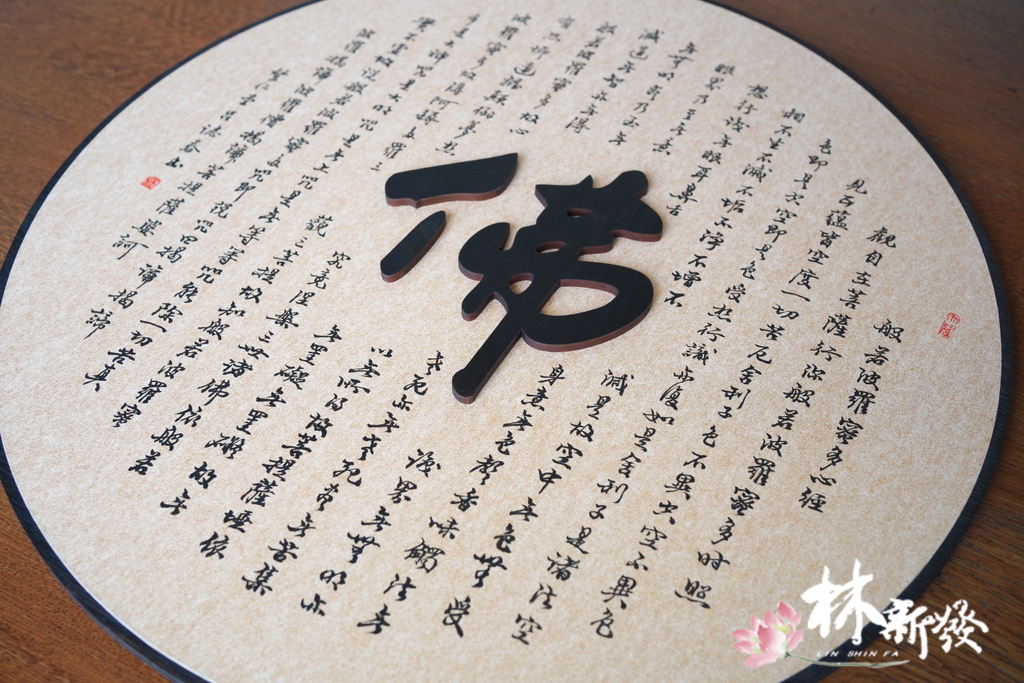 般若波羅蜜多心經
觀自在菩薩行深般若波羅蜜多時照
見五蘊皆空度一切苦厄舍利子色不異空空不異色
色即是空空即是色受想行識亦復如是舍利子是諸法空
相不生不滅不垢不淨不增不
減是故空中無色無受
想行識無眼耳鼻舌
身意無色聲香味觸法無
眼界乃至無意
識界無無明亦
無無明盡乃至無
老死亦無老死盡無苦集
滅道無智亦無得
以無所得故菩提薩埵依
般若波羅蜜多故心
無罣礙無罣礙故無
有恐怖遠離顛倒夢想
究竟涅槃三世諸佛依般若
波羅蜜多故得阿耨多羅三
藐三菩提故知般若波羅蜜
多是大神咒是大明咒是無上咒是無等等咒能除一切苦真
實不虛故說般若波羅蜜多咒即說咒曰揭諦揭諦
波羅揭諦波羅僧揭諦菩提薩婆訶
佛
林新發
LIN SHIN FA